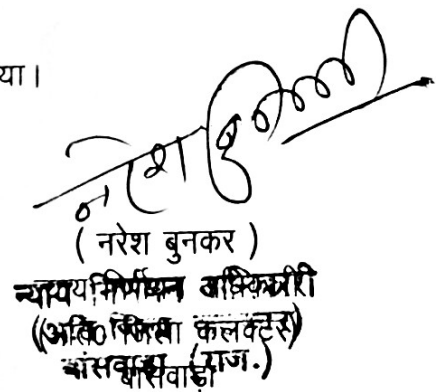 या।
नरेश बु
( नरेश बुनकर )
न्याय निर्णयन अधिकारी
(अति० जिला कलक्टर)
बांसवाड़ा (राज.)
बांसवाड़ा